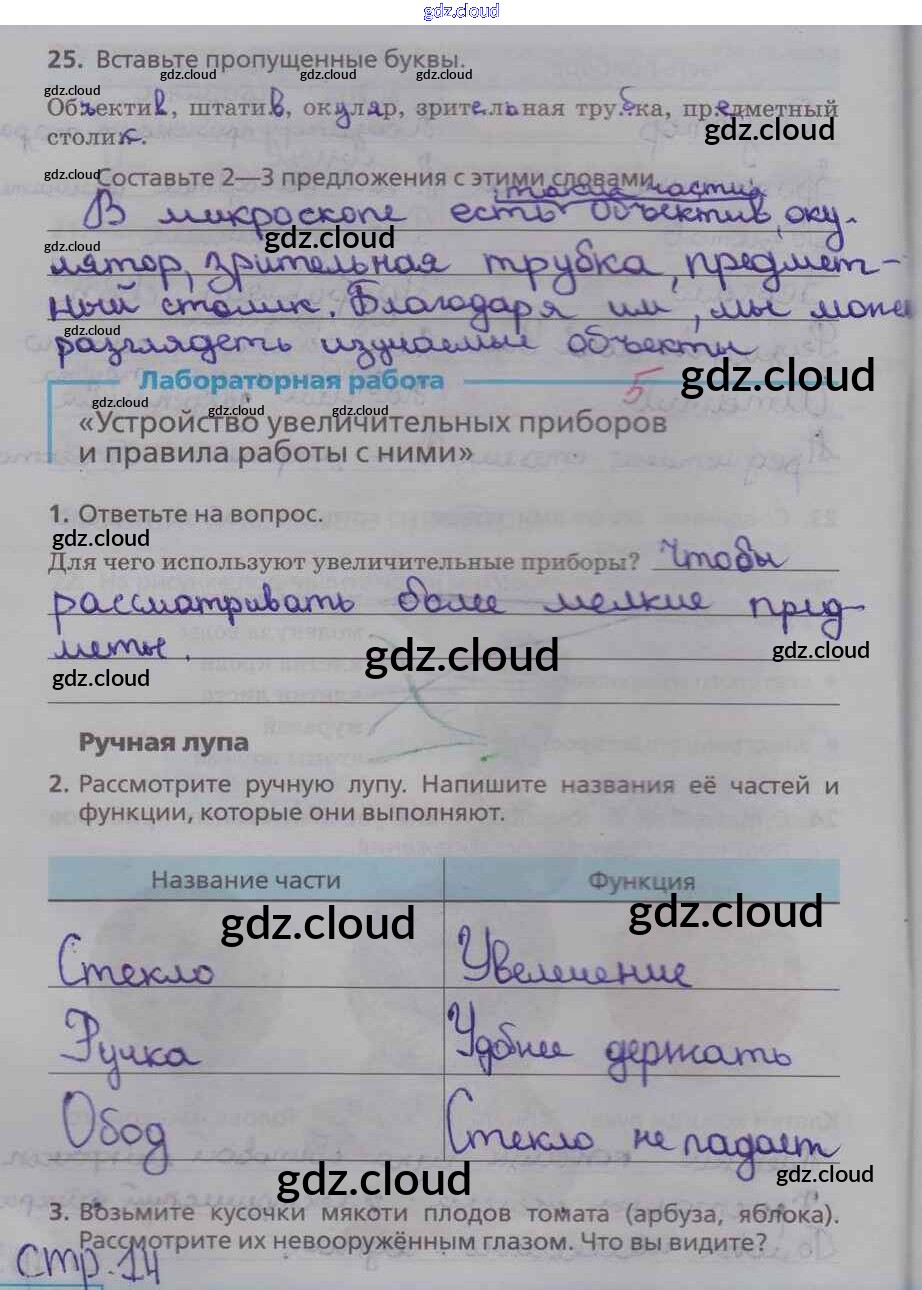 gdz.cloud
25. Вставьте пропущенные буквы.
gdz.cloud gdz.cloud gdz.cloud
Объектив, штатив, окуляр, зрительная трубка, предметный
gdz.cloud
столик.
gdz.cloud
Составьте 2—3 предложения с этими словами.
такие части:
В микроскопе есть объектив, оку-
gdz.cloud gdz.cloud
лятор, зрительная трубка, предмет-
ный столик. Благодаря им, мы може
gdz.cloud
разглядеть изучаемые объекты
Лабораторная работа
5
gdz.cloud
gdz.cloud gdz.cloud gdz.cloud
«Устройство увеличительных приборов
и правила работы с ними»
1. Ответьте на вопрос.
gdz.cloud
Для чего используют увеличительные приборы? Чтобы
рассматривать более мелкие пред-
меты.
gdz.cloud gdz.cloud
gdz.cloud
Ручная лупа
2. Рассмотрите ручную лупу. Напишите названия её частей и
функции, которые они выполняют.
Название части Функция
gdz.cloud gdz.cloud
Стекло Увеличение
gdz.cloud
Ручка Удобнее держать
Обод Стекло не падает
gdz.cloud gdz.cloud
3. Возьмите кусочки мякоти плодов томата (арбуза, яблока).
Рассмотрите их невооружённым глазом. Что вы видите?
стр. 14